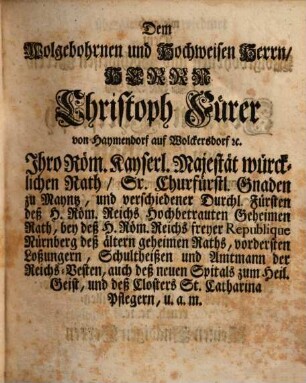 Dem
Wolgebohrnen und Hochweisen Herrn/
HERRN
Christoph Fürer
von Haymendorf auf Wolckersdorf ꝛc.
Ihro Röm. Kayserl. Majestät würck-
lichen Rath / Sr. Churfürstl. Gnaden
zu Mayntz, und verschiedener Durchl. Fürsten
deß H. Röm. Reichs Hochbetrauten Geheimen
Rath, bey deß H. Röm. Reichs freyer Republique
Nürnberg deß ältern geheimen Raths, vordersten
Loßungern, Schultheißen und Amtmann der
Reichs-Vesten, auch deß neuen Spitals zum Heil.
Geist, und deß Closters St. Catharina
Pflegern, u. a. m.